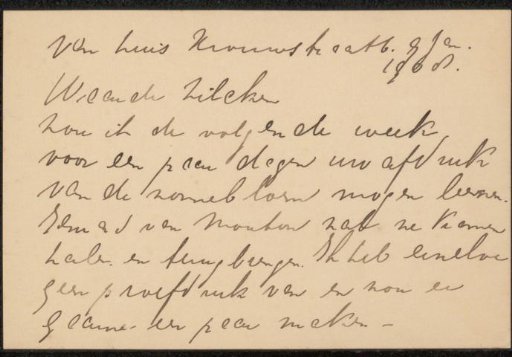 Van huis 6. 9 Jan.
1908.
Waarde Zilcken
Zou ik de volgende week
voor een paar dagen uw afdruk
van de zonnebloem mogen leenen.
Iemand van Mouton zal ze komen
halen en terugbrengen. Ik heb
geen proefdruk van en zou er
gaarne een paar maken –